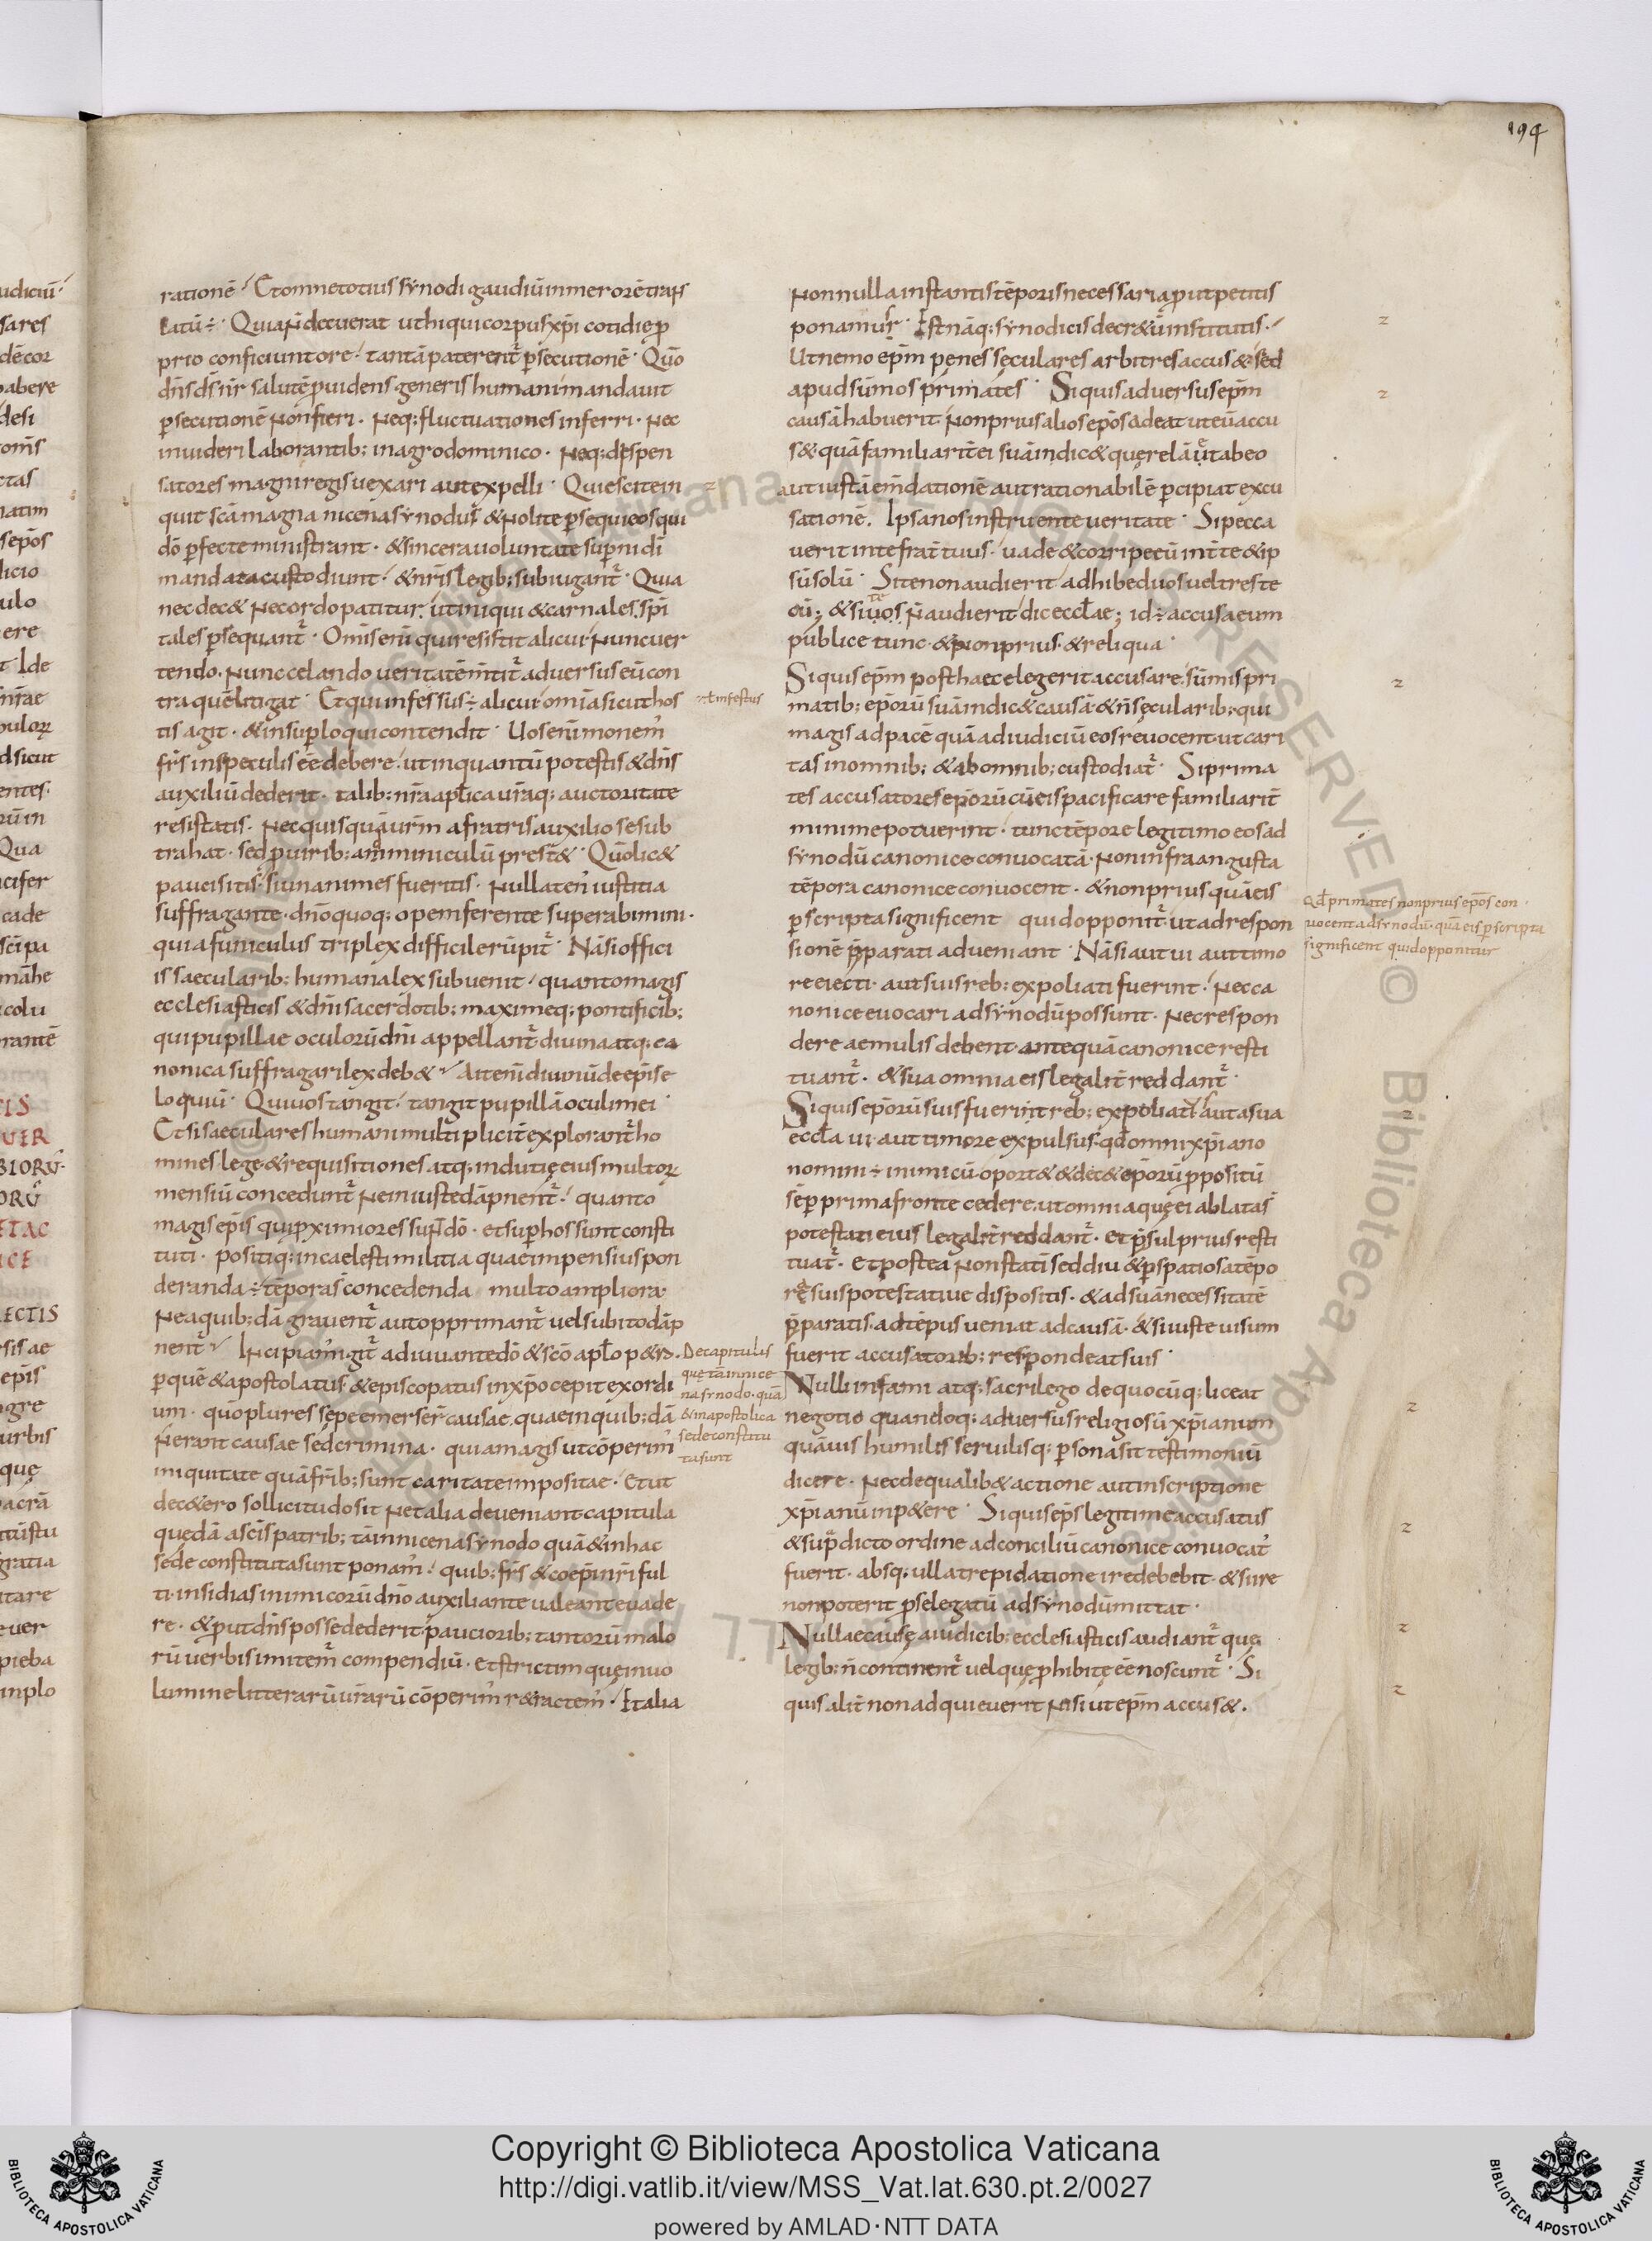 194
rationē. Et omne totius synodi gaudiū in merorē trans
latū ÷. Quia n̄ decuerat ut hi qui corpus xp̄i cotidie p̱
prio conficiunt ore. tantā paterent̄ p̱secutionē. Quō
dn̄s ds̄ nr̄ salutē p̱uidens generis humani mandauit
p̱secutionē non fieri. Neq; fluctuationes inferri. Nec
inuideri laborantib; in agro dominico. Neq; dispen
satores magni regis uexari aut expelli. Quiescite in
quit sc̄a magna nicena synodus & nolite p̱sequi eos qui
dō p̱fecte ministrant. & sincera uoluntate sup̱ni dī
mandata custodiunt. & nr̄is legib; subiugant̄. Quia
nec dec& nec ordo patitur. ut iniqui & carnales. sp̄i
tales p̱sequant̄. Omīs enī qui resistit alicui. Nunc uer
tendo. Nunc celando ueritatē nītit̄ aduersus eū con
tra quē litigat. Et qui infessus ÷ alicui. om̄ia sicut hos
tis agit. & insup̱ loqui contendit. Uos enī monem̄
fr̄s in speculis eē debere. ut in quantū potestis & dn̄s
auxiliū dederit. talib; nr̄a apl̄ica ur̄aq; auctoritate
resistatis. Nec quisquā urm̄ a fratris auxilio se sub
trahat. sed p̱ uirib; amminiculū prest&. Quō lic&
pauci sitis. si unanimes fueritis. Nullaten̄ iustitia
suffragante. dn̄o quoq; opem ferente superabimini.
quia funiculus triplex difficile rūpit̄. Nā si offici
is saecularib; humana lex subuenit. quanto magis
ecclesiasticis & dn̄i sacerdotib; maximeq; pontificib;
qui pupillae oculorū dn̄i appellant̄ diuina atq; ca
nonica suffragari lex deb&. Ait enī diuinū de epīs e
loquiū. Qui uos tangit. tangit pupillā oculi mei.
Et si saeculares humani multiplicit̄ explorant̄ ho
mines lege & requisitiones atq; indutię eius multoꝝ
mensiū concedunt̄ Ne iniuste dāpnent̄. quanto
magis epīs qui p̱ximiores sunt dō. et sup̱ hos sunt consti
tuti. positiq; in caelesti militia quae impensius pon
deranda ÷. tēpora s̄ concedenda multo ampliora.
Ne a quib;dā grauent̄ aut opprimant̄ uel subito dāp
nent̄. Incipiam̄ igit̄ adiuuante dō & sc̄o apl̄o p&ro.
p̱ quē & apostolatus. & episcopatus in xp̄o cepit exordi
um. quō plures sępe emerser̄ causae. quae in quib;dā
Nerant causae sed crimina. quia magis ut cōperim̄
iniquitate quā fr̄ib; sunt caritate impositae. Et ut
dec&ero sollicitudo sit Ne talia deueniant capitula
quędā a sc̄is patrib; tā in nicena synodo quā & in hac
sede constituta sunt ponam̄. quib; fr̄s & coepī nr̄i ful
ti. insidias inimicorū dn̄o auxiliante ualeant euade
re. & p̱ut dn̄s posse dederit pauciorib; tantorū malo
rū uerbis imitem̄ compendiū. et strictim quę in uo
lumine litterarū ur̄arū cōperim̄ r&ractem̄. Italia
ł infestus
De capitulis
quę tā in nice
na synodo. quā
& in apostolica
sede constitu
ta sunt
Non nulla instantis tēporis necessaria p̱ut petitis
ponamus. Est nāq; synodicis decr&is institutis.
Ut nemo epm̄ penes sęculares arbitres accus& sed
apud sūmos primates. Siquis aduersus epm̄
causā habuerit. Non prius alios epōs adeat ut eū accu
s& quā familiarit̄ ei suā indic& querelā ut ab eo
aut iustā em̄dationē aut rationabilē p̱cipiat excu
sationē. Ipsa nos instruente ueritate. Si pecca
uerit in te frat̄ tuus. uade & corripe eū int̄ te & ip
sū solū. Si te non audierit adhibe duos uel tres te
cū; & si nec uos n̄ audierit dic eccl̄ae; id ÷ accusa eum
publice tunc & non prius. & reliqua.
Siquis epm̄ post haec elegerit accusare. sūmis pri
matib; epōrū suā indic& causā. & n̄ sęcularib; qui
magis ad pacē quā ad iudiciū eos reuocent ut cari
tas in omnib; & ab omnib; custodiat̄. Si prima
tes accusatores epōrū cū eis pacificare familiarit̄
minime potuerint. tunc tēpore legitimo eos ad
synodū canonice conuocatā. Non infra angusta
tēpora canonice conuocent. & non prius quā eis
p̱ scripta significent quid opponit̄. ut ad respon
sionē p̄parati adueniant. Nā si aut ui aut timo
re eiecti. aut suis reb; expoliati fuerint. Nec ca
nonice euocari ad synodū possunt. Nec respon
dere aemulis debent antequā canonice resti
tuant̄. & sua omnia eis legalit̄ reddant̄.
Siquis epōrū suis fuerit reb; expoliatus aut a sua
eccl̄a ui. aut timore expulsus. qd̄ omni xp̄iano
nomini ÷ inimicū oport& & dec& epōrū p̱positū
sēp̱ prima fronte cedere. ut omnia quę ei ablata s̄
potestati eius legalit̄ reddant̄. et p̄sul prius resti
tuat̄. Et postea non statī sed diu & p̱ spatiosa tēpo
rę suis potestatiue dispositis. & ad suā necessitatē
p̄paratis. ad tēpus ueniat ad causā. & si iuste uisum
fuerit accusatorib; respondeat suis.
Nulli infami atq; sacrilego de quocūq; liceat
negotio quandoq; aduersus religiosū xp̄ianum
quāuis humilis seruilisq; p̱sona sit testimoniū
dicere. Nec de qualib& actione aut inscriptione
xp̄ianū inp&ere. Siquis eps̄ legitime accusatus
& sup̄ dicto ordine ad conciliū canonice conuocat̄
fuerit. absq; ulla trepidatione ire debebit. & si ire
non poterit p̱ se legatū ad synodū mittat.
Nullae causę a iudicib; ecclesiasticis audiant̄ quę
legib; n̄ continent̄ uel quę p̱hibitę eē noscunt̄. Si
quis alit̄ non adquieuerit Nisi ut epm̄ accus&.
Qd̄ primates non prius epōs con
uocent ad synodū. quā eis p̱ scripta
significent quid opponitur
udiciū.
sares
dēcor
habere
desi
ctas
natim
sepōs
licio
ulo
ere
t Ide
dsicut
entes.
rū in
Qua
cifer
cade
colu
CIS
UER
BIORŪ.
ORŪ
ICE
LECTIS
sis ae
epīs
urbis
quę
gratia
itare
euer
pieba
implo
Copyright © Biblioteca Apostolica Vaticana
http://digi.vatlib.it/view/MSS_Vat.lat.630.pt.2/0027
powered by AMLAD·NTT DATA
BIBLIOTECA APOSTOLICA VATICANA
BIBLIOTECA APOSTOLICA VATICANA